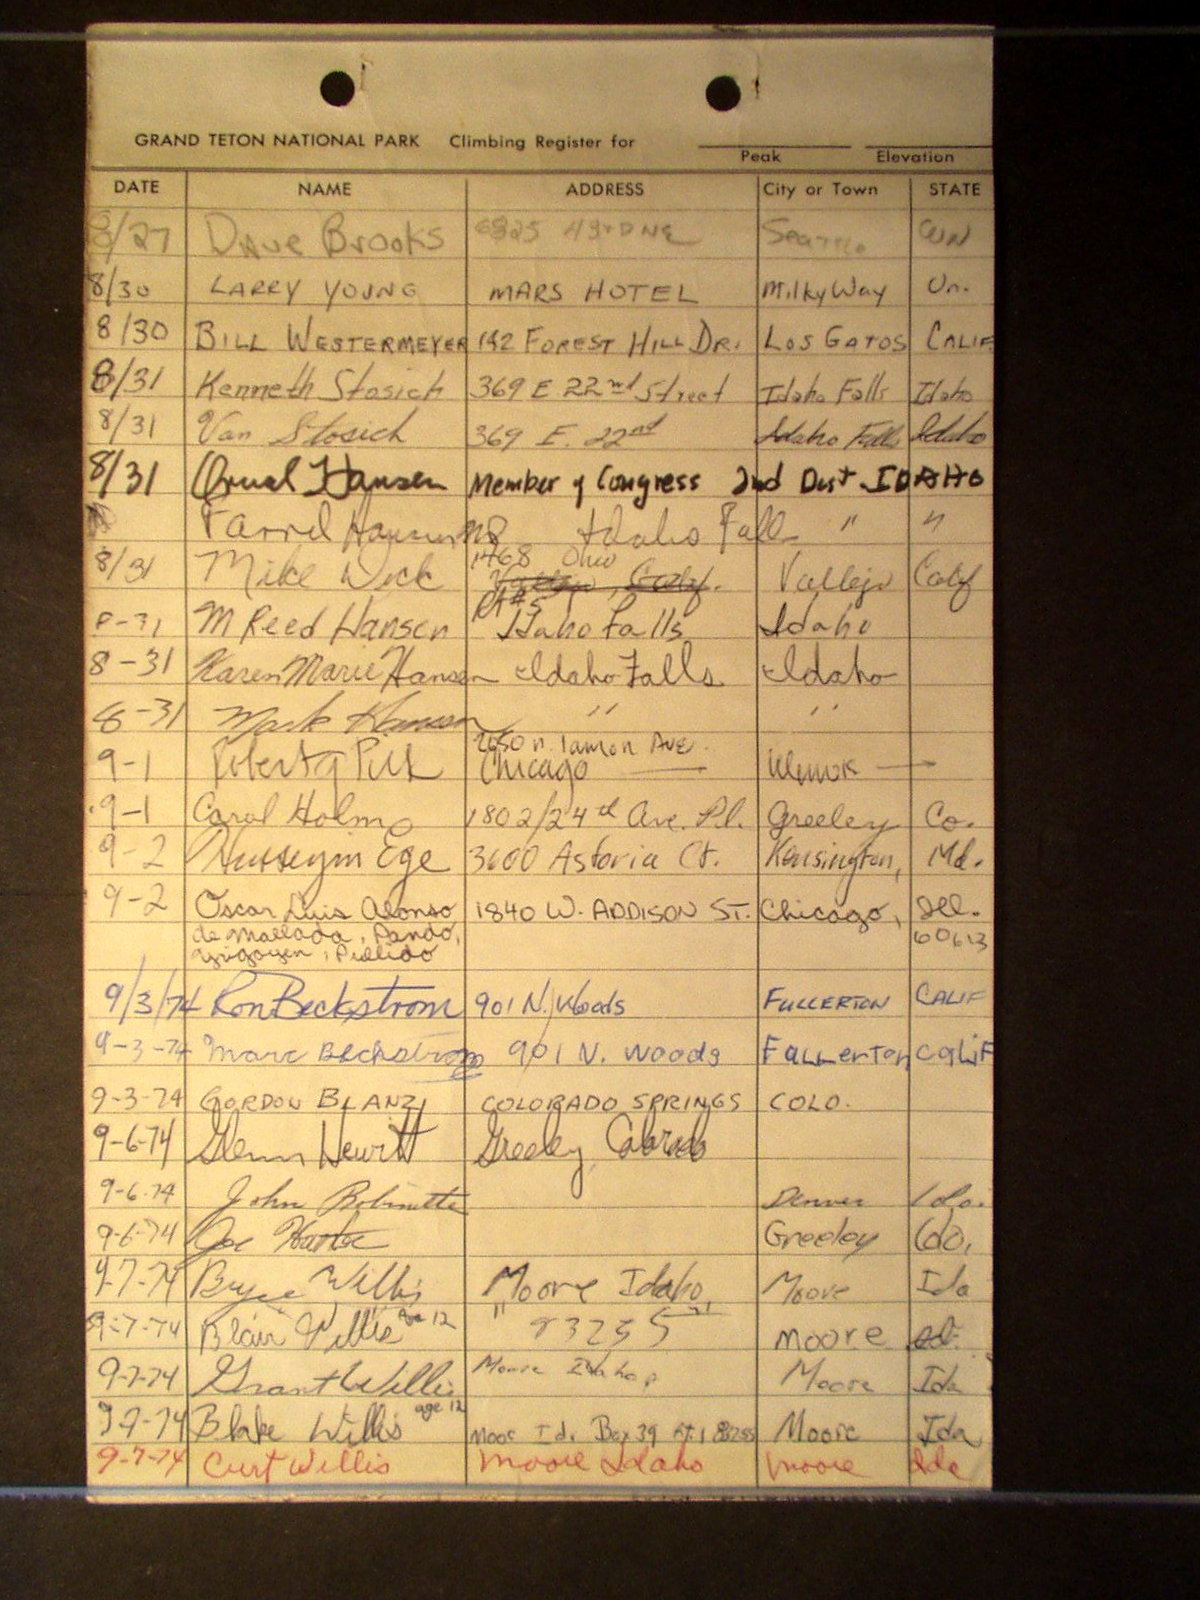 GRAND TETON NATIONAL PARK Climbing Register for
Peak Elevation
DATE NAME ADDRESS City or Town STATE
8/27 Dave Brooks 6825 43rd NE Seattle WN
8/30 LARRY YOUNG MARS HOTEL Milky Way Un.
8/30 BILL WESTERMEYER 142 FOREST HILL DR. LOS GATOS CALIF
8/31 Kenneth Stosich 369 E 22nd Street Idaho Falls Idaho
8/31 Van Stosich 369 E. 22nd Idaho Falls Idaho
8/31 Orval Hansen Member of Congress 2nd Dist IDAHO
Hansen Idaho Falls " "
1468 Ohio
8/31 Mike Vallejo, Calif. Vallejo Calif
Rt #5
8-31 M Reed Hansen Idaho Falls Idaho
8-31 Karen Marie Hansen Idaho Falls Idaho
8-31 Mark Hansen " "
N. Lamon Ave.
9-1 Robert Chicago —
9-1 Carol Holm 1802/24th Ave. Pl. Greeley Co.
9-2 Husseyin Ege 3600 Astoria Ct. Kensington, Md.
9-2 Oscar Luis Alonso 1840 W. ADDISON ST. Chicago, Ill.
de Mallada, Pando, 60613
Pulido
9/3/74 Ron Beckstrom 901 N. Woods FULLERTON CALIF
9-3-74 Marc Beckstrom 901 N. Woods Fullerton caliF
9-3-74 GORDON BLANZ COLORADO SPRINGS COLO.
9-6-74 Glenn Hewitt Greeley, Colorado
9-6-74 John Robinette Denver Colo.
9-6-74 Joe Greeley Co.
9-7-74 Bryce Willis Moore Idaho Moore Ida
9-7-74 Blair Willis age 12 " 83255 " moore Id.
9-7-74 Grant Willis Moore Idaho Moore Ida
9-7-74 Blake Willis age 12 Moore Ida Box 39 Rt. 1 83255 Moore Ida
9-7-74 Curt Willis Moore Idaho moore Ida